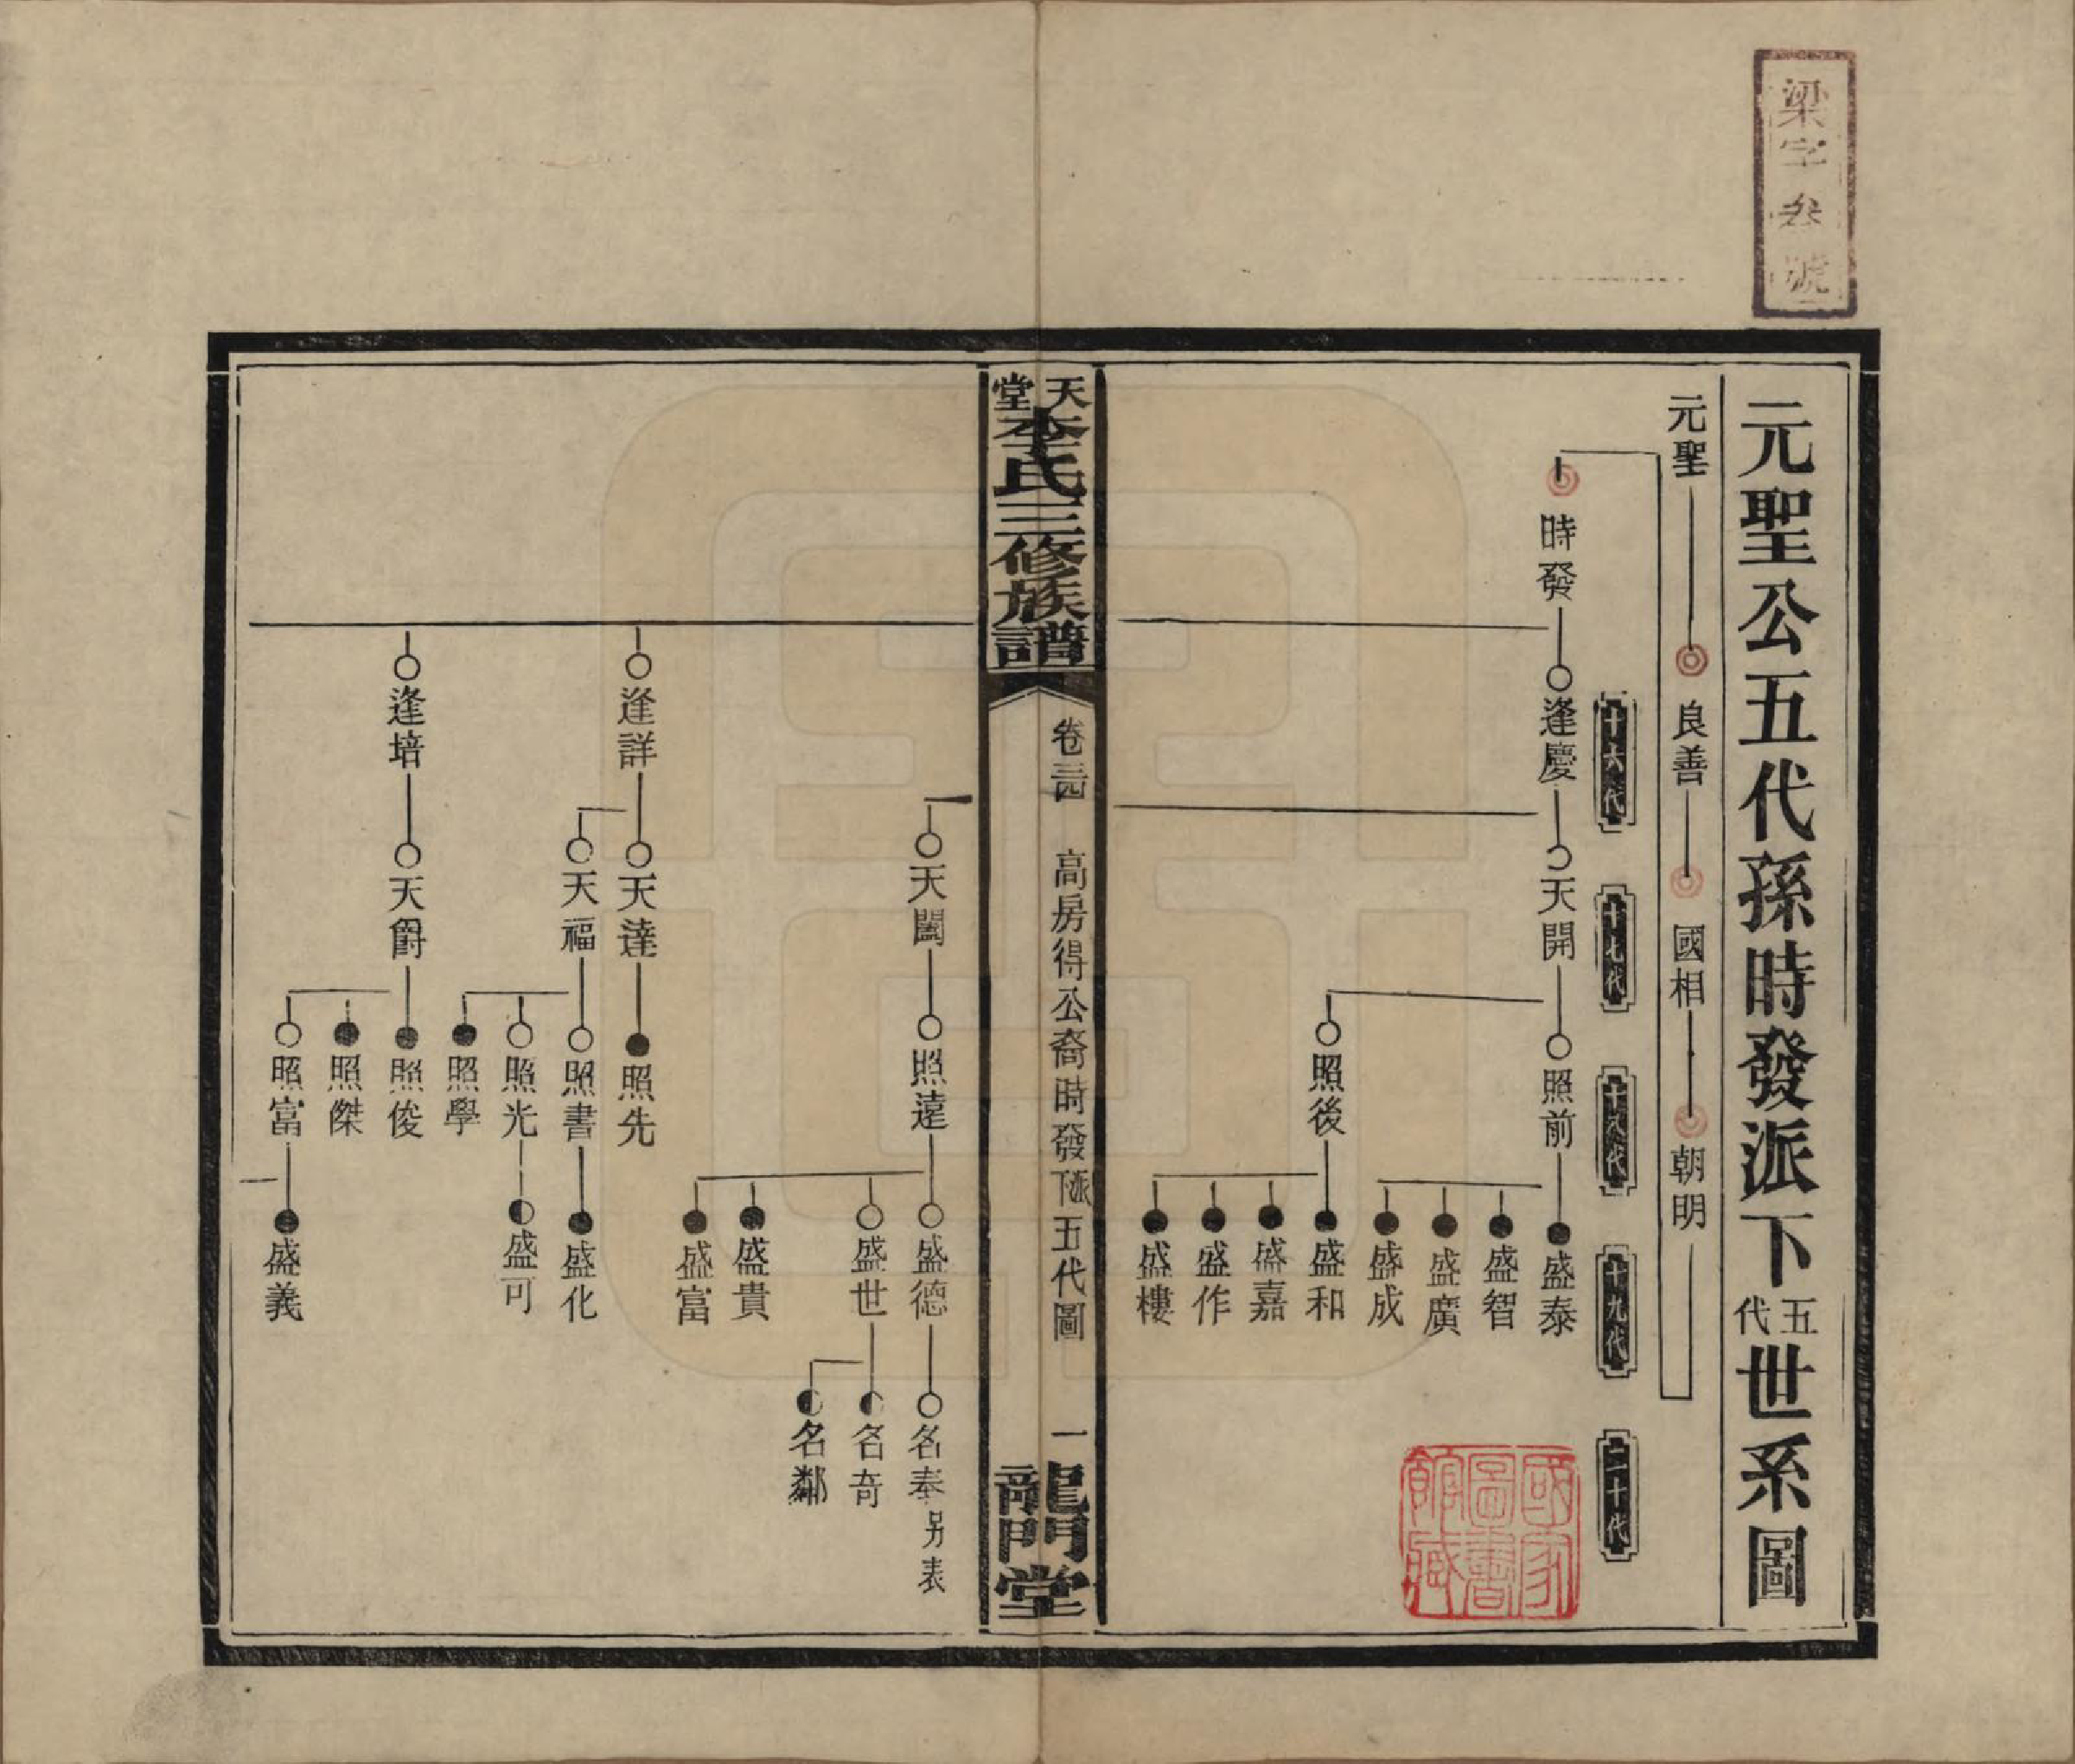 梁字叁號
元聖公五代孫時發派下五代世系圖
元聖
良善
國相
朝明
十六代
十七代
十八代
十九代
二十代
時發
逢慶
天開
照前
盛泰
盛智
盛廣
盛成
照後
盛和
盛嘉
盛作
盛樓
國家圖書館藏
天堂李氏三修族譜
卷三四
高房得公裔時發派下五代圖
一
龍門堂
天闓
照遠
盛德
名奉另表
盛世
名奇
名鄰
盛貴
盛富
逢詳
天達
照先
天福
照書
盛化
照光
盛可
照學
逢培
天爵
照俊
照傑
照富
盛義